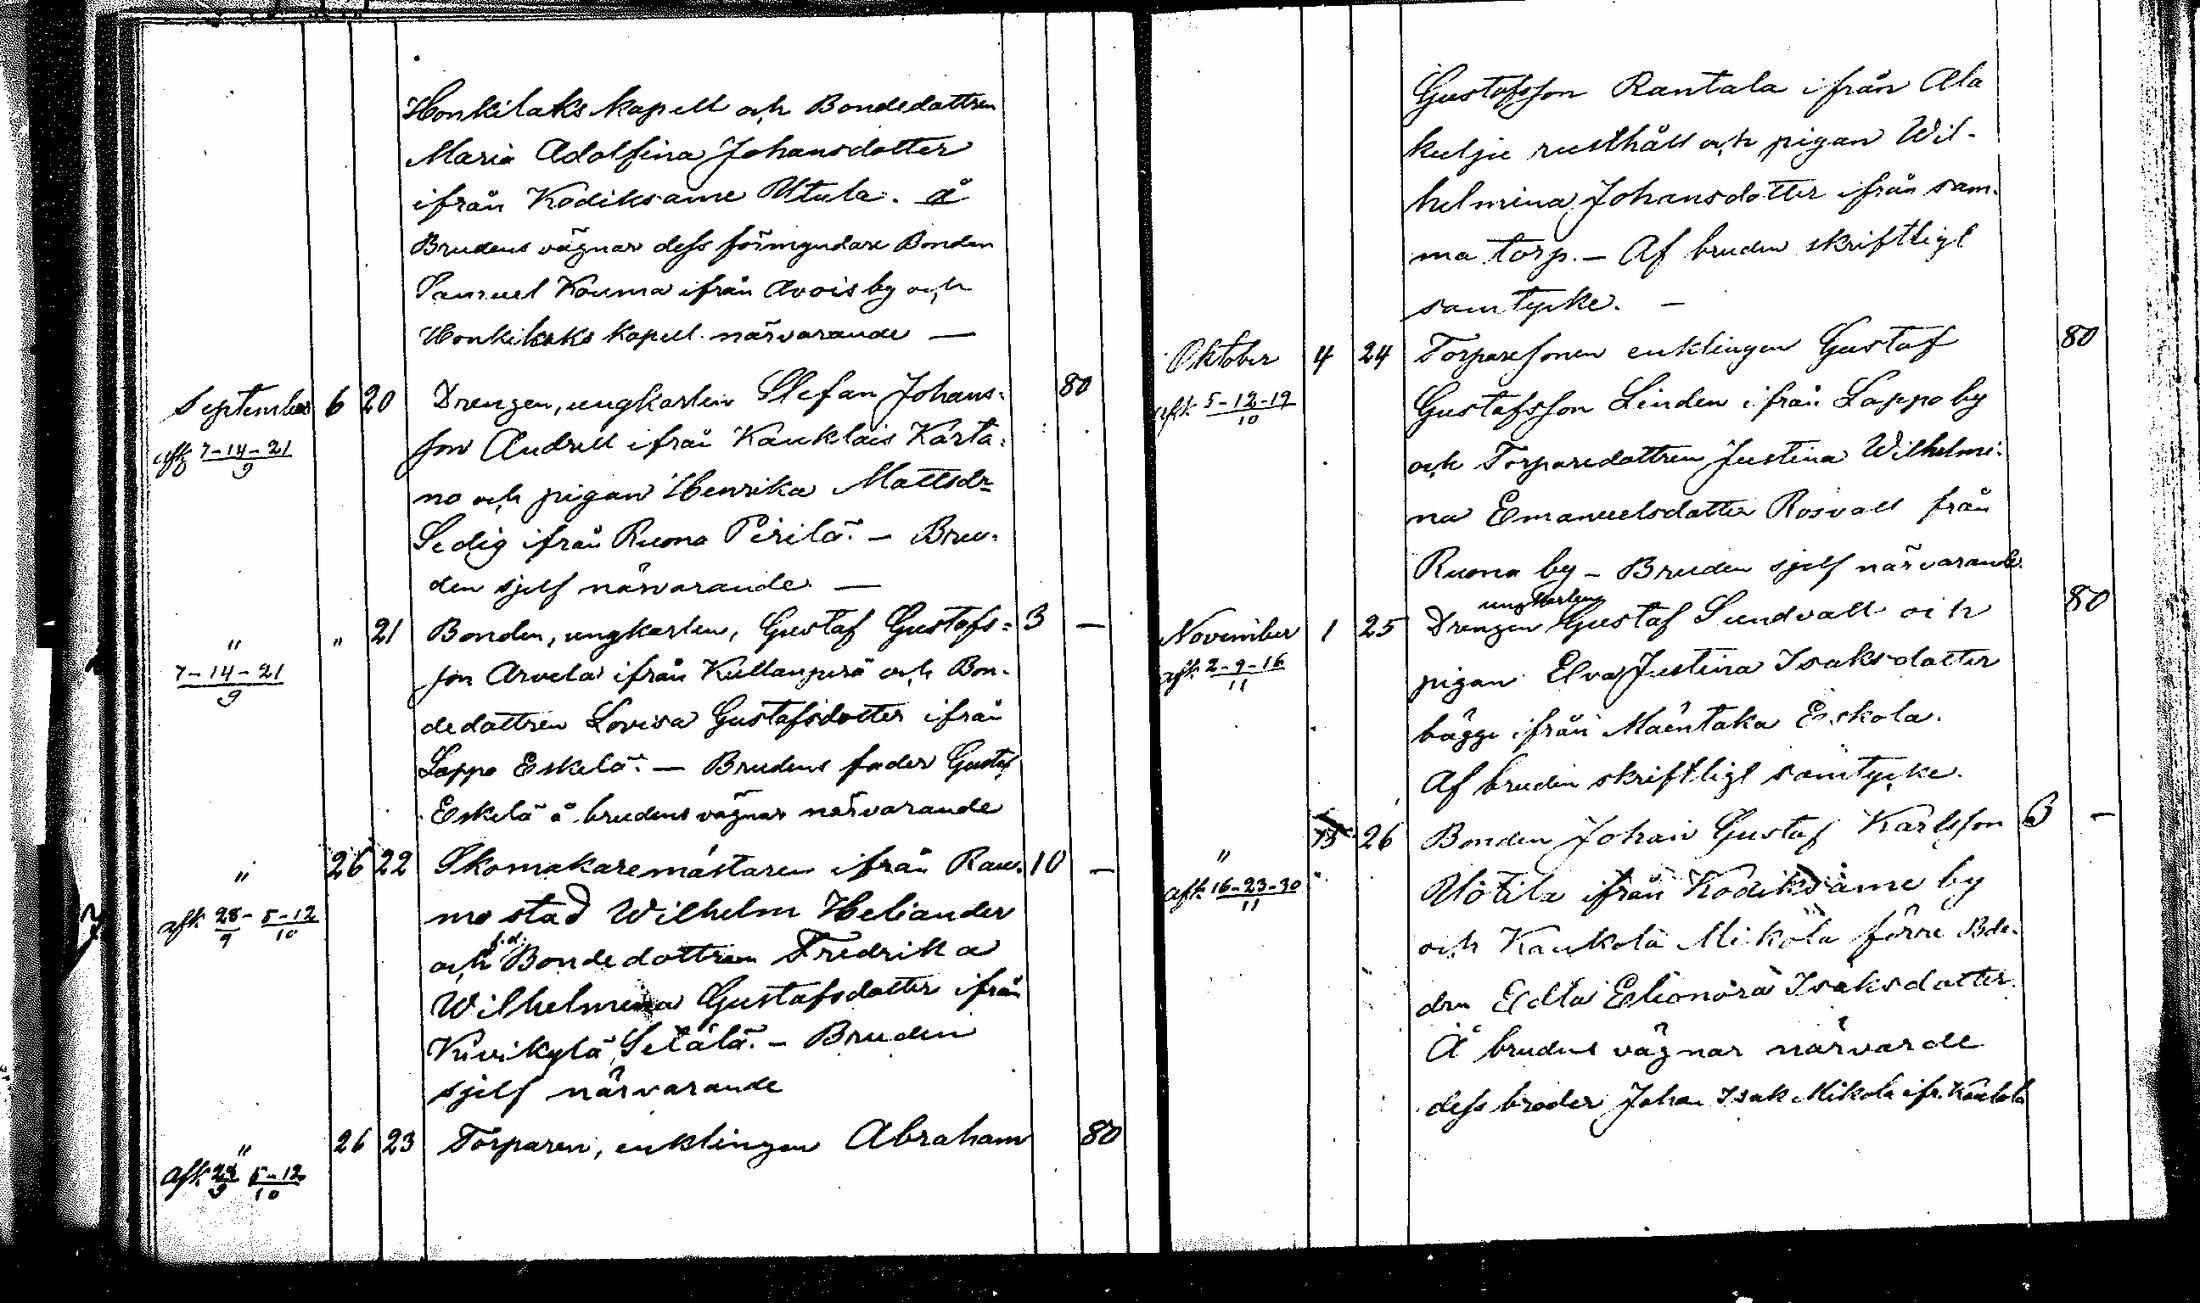 Honkilaks kapell och Bondedattren
Maria Adolfina Johansdotter
ifrån Kodiksame Utula. å
Brudens vägnar dess förmyndare Bonden
Samuel Kouma ifrån Avois by och
Honkilaks kapell närvarande —
September 6 20 Drengen, ungkarlen Stefan Johans- 80
afk 7-14-21/9 son Andrell ifrån Kauklais Karta-
no och pigan Henrika Mattsdr
Sedig ifrån Ruona Perilä. — Bru-
den sjelf närvarande —
" " 21 Bonden, ungkarlen, Gustaf Gustafs= 3 —
7-14-21/9 son Arvela ifrån Kullanperä och Bon-
dedattren Lovisa Gustafsdotter ifrån
Lappo Eskelä. — Brudens fader Gustaf
Eskelä å brudens vägnar närvarande
" 26 22 Skomakaremästaren ifrån Rau- 10 —
afk 28/9 - 5-12/10 mo stad Wilhelm Heliander
och f.d. Bondedottren Fredrika
Wilhelmina Gustafsdotter ifrån
Kivikylä Setälä. — Bruden
sjelf närvarande
" 26 23 Torparen, enklingen Abraham 80
afk 28/9 5-12/10
Gustafsson Rantala ifrån Ala
kulju rusthåll och pigan Wil-
helmina Johansdotter ifrån sam-
ma torp. — Af bruden skriftligt
samtycke. —
Oktober 4 24 Torparesonen enklingen Gustaf 80
afk 5-12-19/10 Gustafsson Linden ifrån Lappo by
och Torparedottren Justina Wilhelmi-
na Emanuelsdotter Rosvall från
Ruona by — Bruden sjelf närvarande.
ungkarlen
November 1 25 Drengen Gustaf Sundvall och 80
afk 2-9-16/11 pigan Elva Justina Isaksdotter
bägge ifrån Mäentaka Eskola.
Af bruden skriftligt samtycke.
" 15 26 Bonden Johan Gustaf Karlsson 3 —
afk 16-23-30/11 Ulötila ifrån Kodiksame by
och Kaukola Mikola förre Bde-
dru Edla Elionora Isaksdotter.
Å brudens vägnar närvarde
dess broder Johan Isak Mikola ifr. Kaukola